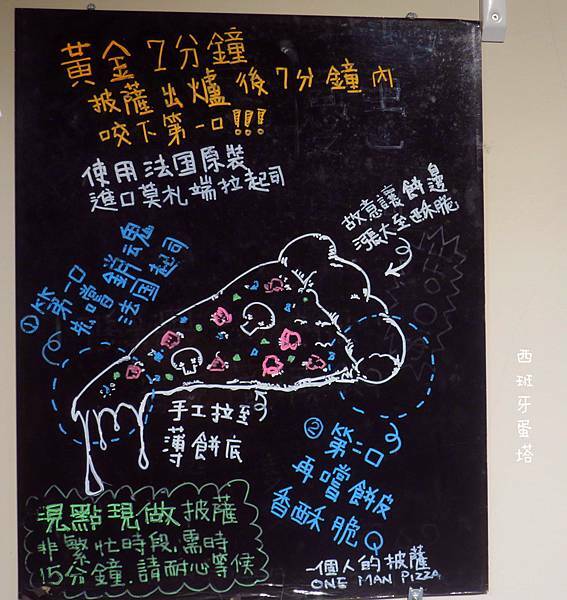 黃金7分鐘
披薩出爐後7分鐘內
咬下第一口!!!
使用法国原裝
進口莫札端拉起司
故意讓餅邊
漲大至酥脆
① 第一口
先嚐銷魂
法国起司
手工拉至
薄餅底
② 第二口
再嚐餅皮
香酥脆Q
現點現做披薩
非繁忙時段,需時
15分鐘,請耐心等候
一個人的披薩
ONE MAN PIZZA
西班牙蛋塔